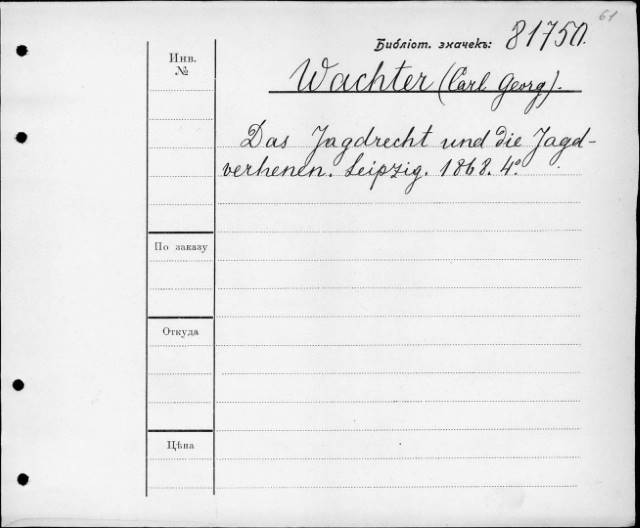 61
Библіот. значекъ: 81750.
Инв.
№
Wachter (Carl Georg).
Das Jagdrecht und die Jagd-
verhenen. Leipzig. 1868. 4º.
По заказу
Откуда
Цѣна